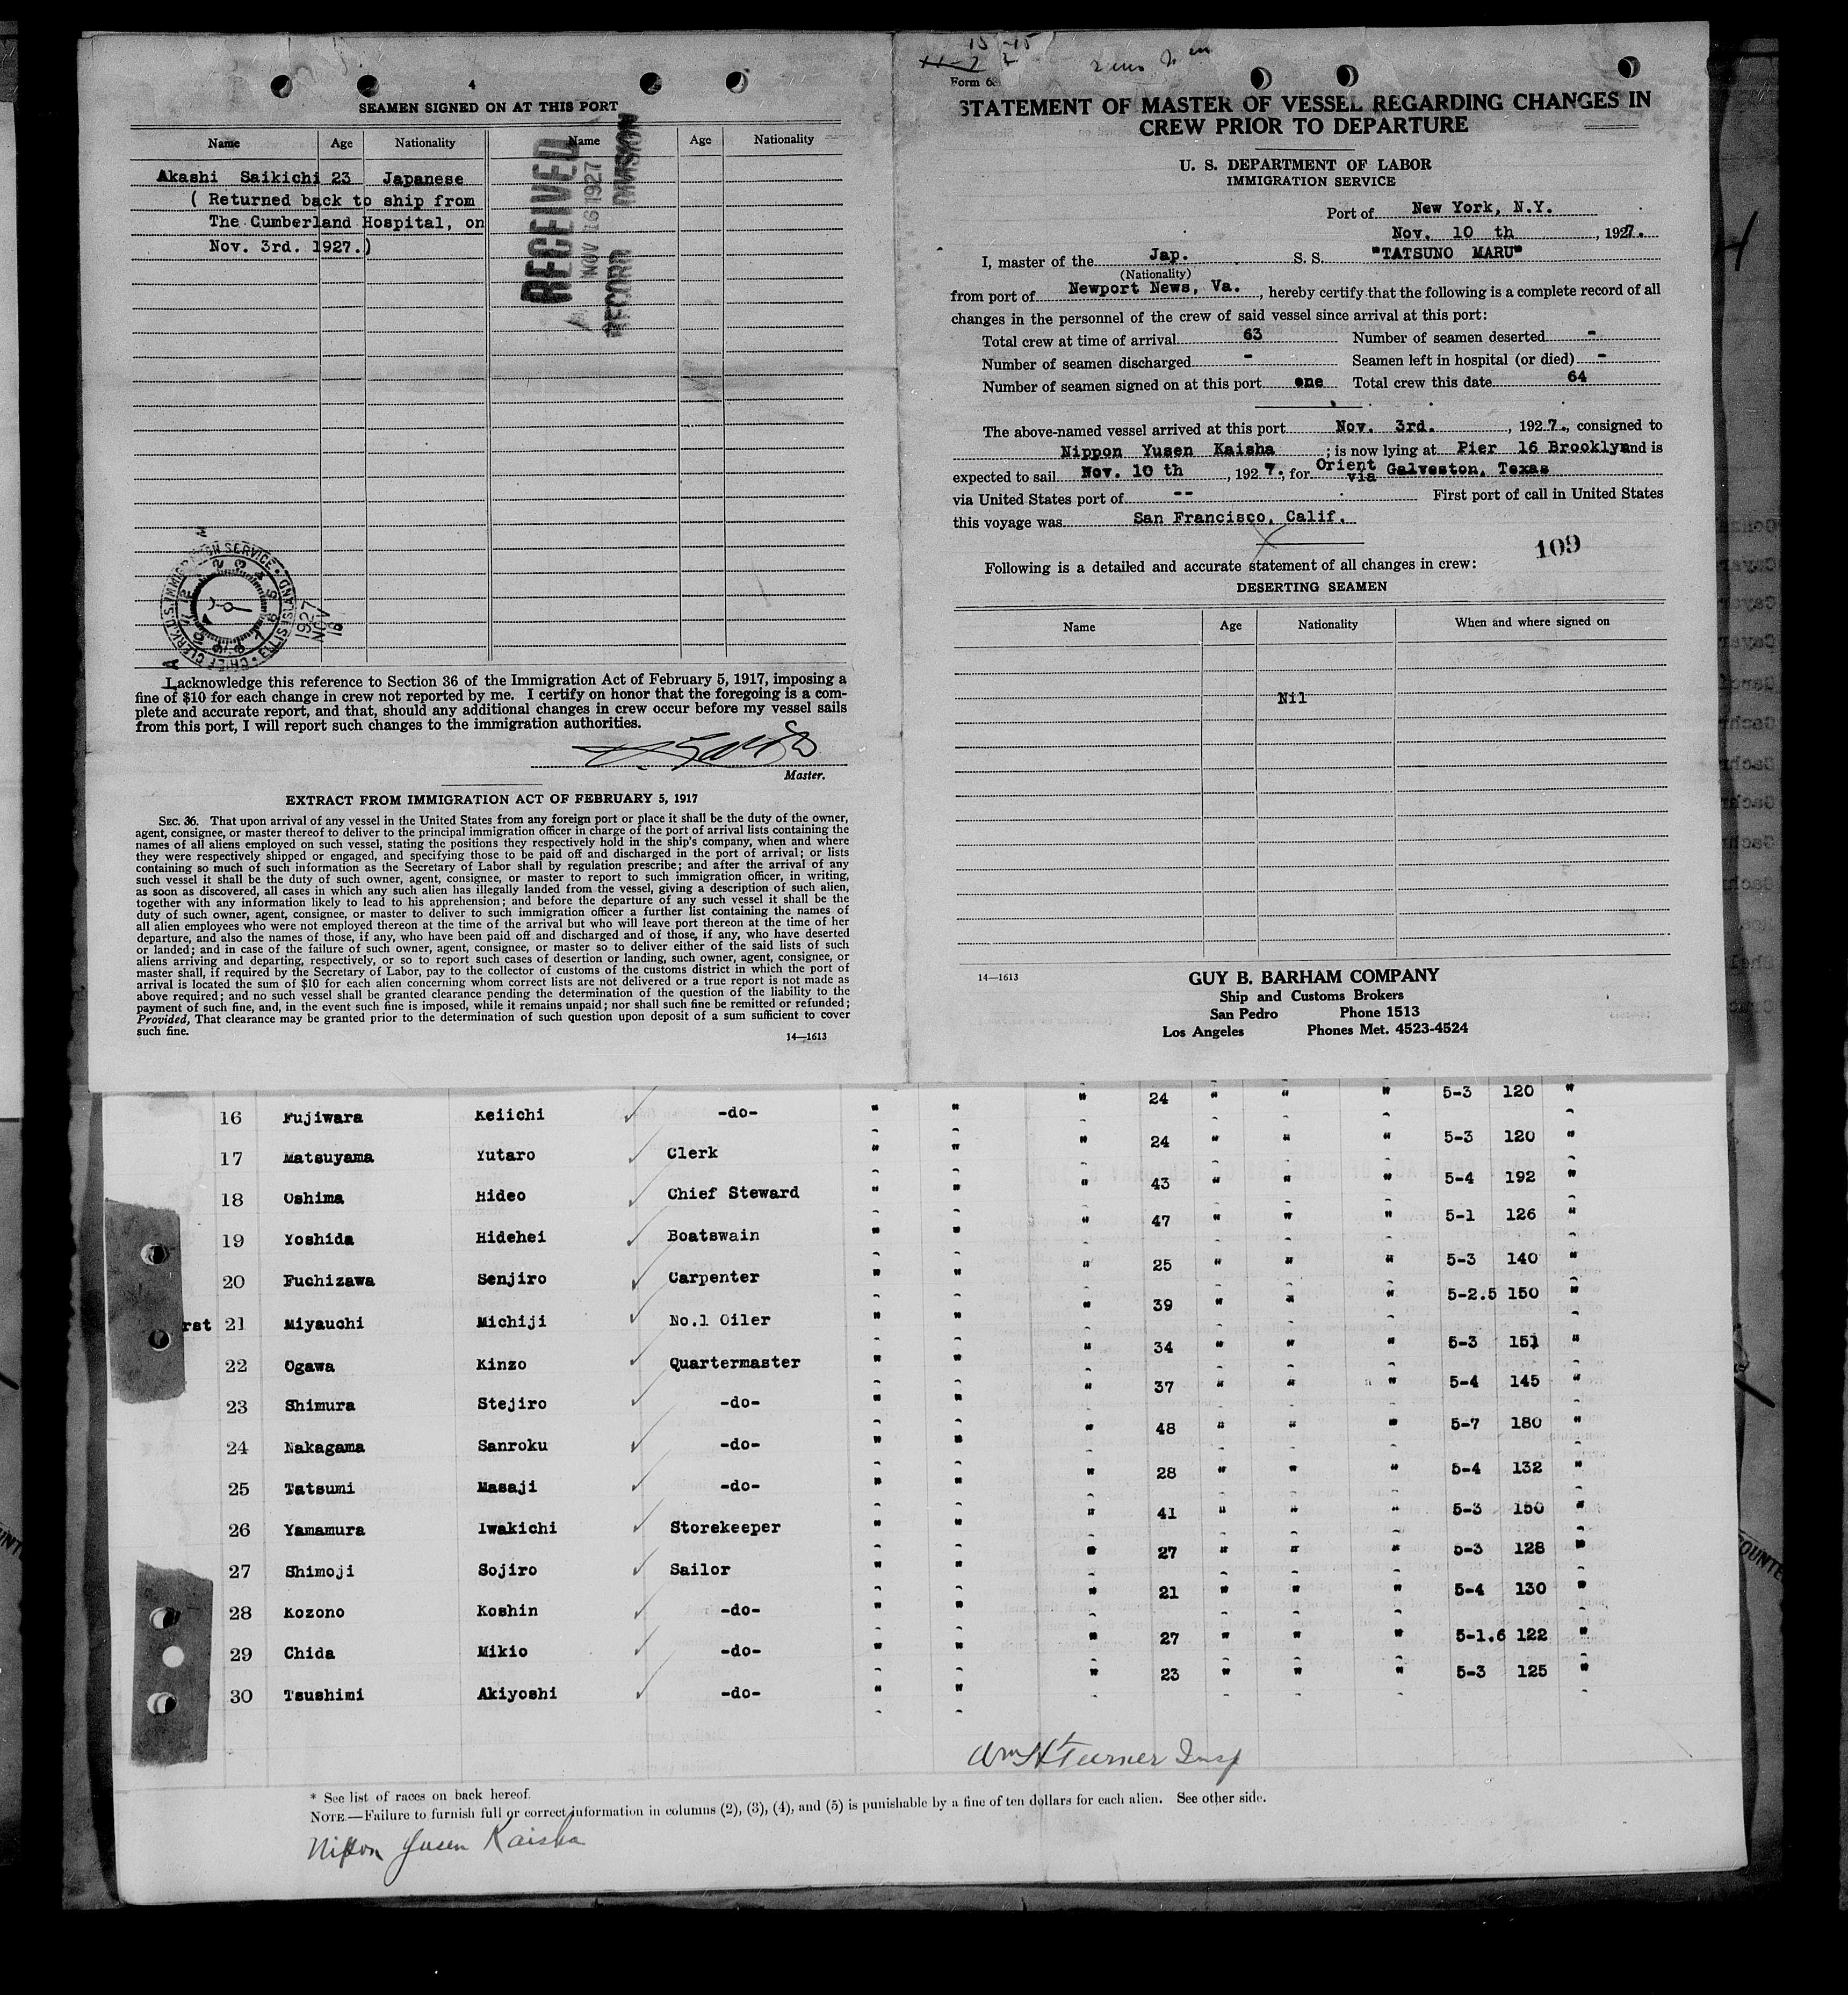 4
SEAMEN SIGNED ON AT THIS PORT
Name Age Nationality Name Age Nationality
Akashi Saikichi 23 Japanese
( Returned back to ship from
The Cumberland Hospital, on
Nov. 3rd. 1927.)
RECEIVED
NOV 16 1927
RECORD DIVISION
CHIEF CLERK, U.S. IMMIGRATION SERVICE • ELLIS ISLAND
1927
NOV
I acknowledge this reference to Section 36 of the Immigration Act of February 5, 1917, imposing a
fine of $10 for each change in crew not reported by me. I certify on honor that the foregoing is a com-
plete and accurate report, and that, should any additional changes in crew occur before my vessel sails
from this port, I will report such changes to the immigration authorities.
Master.
EXTRACT FROM IMMIGRATION ACT OF FEBRUARY 5, 1917
SEC. 36. That upon arrival of any vessel in the United States from any foreign port or place it shall be the duty of the owner,
agent, consignee, or master thereof to deliver to the principal immigration officer in charge of the port of arrival lists containing the
names of all aliens employed on such vessel, stating the positions they respectively hold in the ship's company, when and where
they were respectively shipped or engaged, and specifying those to be paid off and discharged in the port of arrival; or lists
containing so much of such information as the Secretary of Labor shall by regulation prescribe; and after the arrival of any
such vessel it shall be the duty of such owner, agent, consignee, or master to report to such immigration officer, in writing,
as soon as discovered, all cases in which any such alien has illegally landed from the vessel, giving a description of such alien,
together with any information likely to lead to his apprehension; and before the departure of any such vessel it shall be the
duty of such owner, agent, consignee, or master to deliver to such immigration officer a further list containing the names of
all alien employees who were not employed thereon at the time of the arrival but who will leave port thereon at the time of her
departure, and also the names of those, if any, who have been paid off and discharged and of those, if any, who have deserted
or landed; and in case of the failure of such owner, agent, consignee, or master so to deliver either of the said lists of such
aliens arriving and departing, respectively, or so to report such cases of desertion or landing, such owner, agent, consignee, or
master shall, if required by the Secretary of Labor, pay to the collector of customs of the customs district in which the port of
arrival is located the sum of $10 for each alien concerning whom correct lists are not delivered or a true report is not made as
above required; and no such vessel shall be granted clearance pending the determination of the question of the liability to the
payment of such fine, and, in the event such fine is imposed, while it remains unpaid; nor shall such fine be remitted or refunded;
Provided, That clearance may be granted prior to the determination of such question upon deposit of a sum sufficient to cover
such fine.
14—1613
Form 6
STATEMENT OF MASTER OF VESSEL REGARDING CHANGES IN
CREW PRIOR TO DEPARTURE
U. S. DEPARTMENT OF LABOR
IMMIGRATION SERVICE
Port of New York, N.Y.
Nov. 10 th, 1927.
I, master of the Jap. S. S. "TATSUNO MARU"
(Nationality)
from port of Newport News, Va., hereby certify that the following is a complete record of all
changes in the personnel of the crew of said vessel since arrival at this port:
Total crew at time of arrival 63 Number of seamen deserted -
Number of seamen discharged - Seamen left in hospital (or died) -
Number of seamen signed on at this port one Total crew this date 64
The above-named vessel arrived at this port Nov. 3rd., 1927., consigned to
Nippon Yusen Kaisha; is now lying at Pier 16 Brooklyn and is
expected to sail Nov. 10 th, 1927., for Orient via Galveston, Texas
via United States port of -- First port of call in United States
this voyage was San Francisco, Calif.
109
Following is a detailed and accurate statement of all changes in crew:
DESERTING SEAMEN
Name Age Nationality When and where signed on
Nil
14—1613
GUY B. BARHAM COMPANY
Ship and Customs Brokers
San Pedro Phone 1513
Los Angeles Phones Met. 4523-4524
16 Fujiwara Keiichi -do- " " " 24 " " " 5-3 120 "
17 Matsuyama Yutaro Clerk " " " 24 " " " 5-3 120 "
18 Oshima Hideo Chief Steward " " " 43 " " " 5-4 192 "
19 Yoshida Hidehei Boatswain " " " 47 " " " 5-1 126 "
20 Fuchizawa Senjiro Carpenter " " " 25 " " " 5-3 140 "
rst 21 Miyauchi Michiji No.1 Oiler " " " 39 " " " 5-2.5 150 "
22 Ogawa Kinzo Quartermaster " " " 34 " " " 5-3 151 "
23 Shimura Stejiro -do- " " " 37 " " " 5-4 145 "
24 Nakagama Sanroku -do- " " " 48 " " " 5-7 180 "
25 Tatsumi Masaji -do- " " " 28 " " " 5-4 132 "
26 Yamamura Iwakichi Storekeeper " " " 41 " " " 5-3 150 "
27 Shimoji Sojiro Sailor " " " 27 " " " 5-3 128 "
28 Kozono Koshin -do- " " " 21 " " " 5-4 130 "
29 Chida Mikio -do- " " " 27 " " " 5-1.6 122 "
30 Tsushimi Akiyoshi -do- " " " 23 " " " 5-3 125 "
Wm H Turner Insp
* See list of races on back hereof.
NOTE.—Failure to furnish full or correct information in columns (2), (3), (4), and (5) is punishable by a fine of ten dollars for each alien. See other side.
Nippon Yusen Kaisha